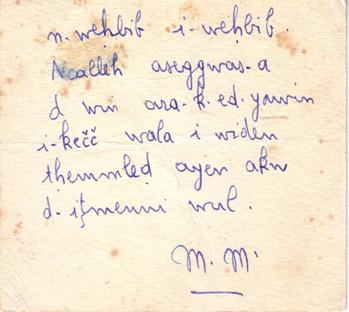 n. weḥbib i-weḥbib.
Ncalleh aseggwas-a
d win ara-k-ed-yawin
i-kečč wala i wiḍen
themmleḍ ayen akw
d-iţmenni wul.
M. M.